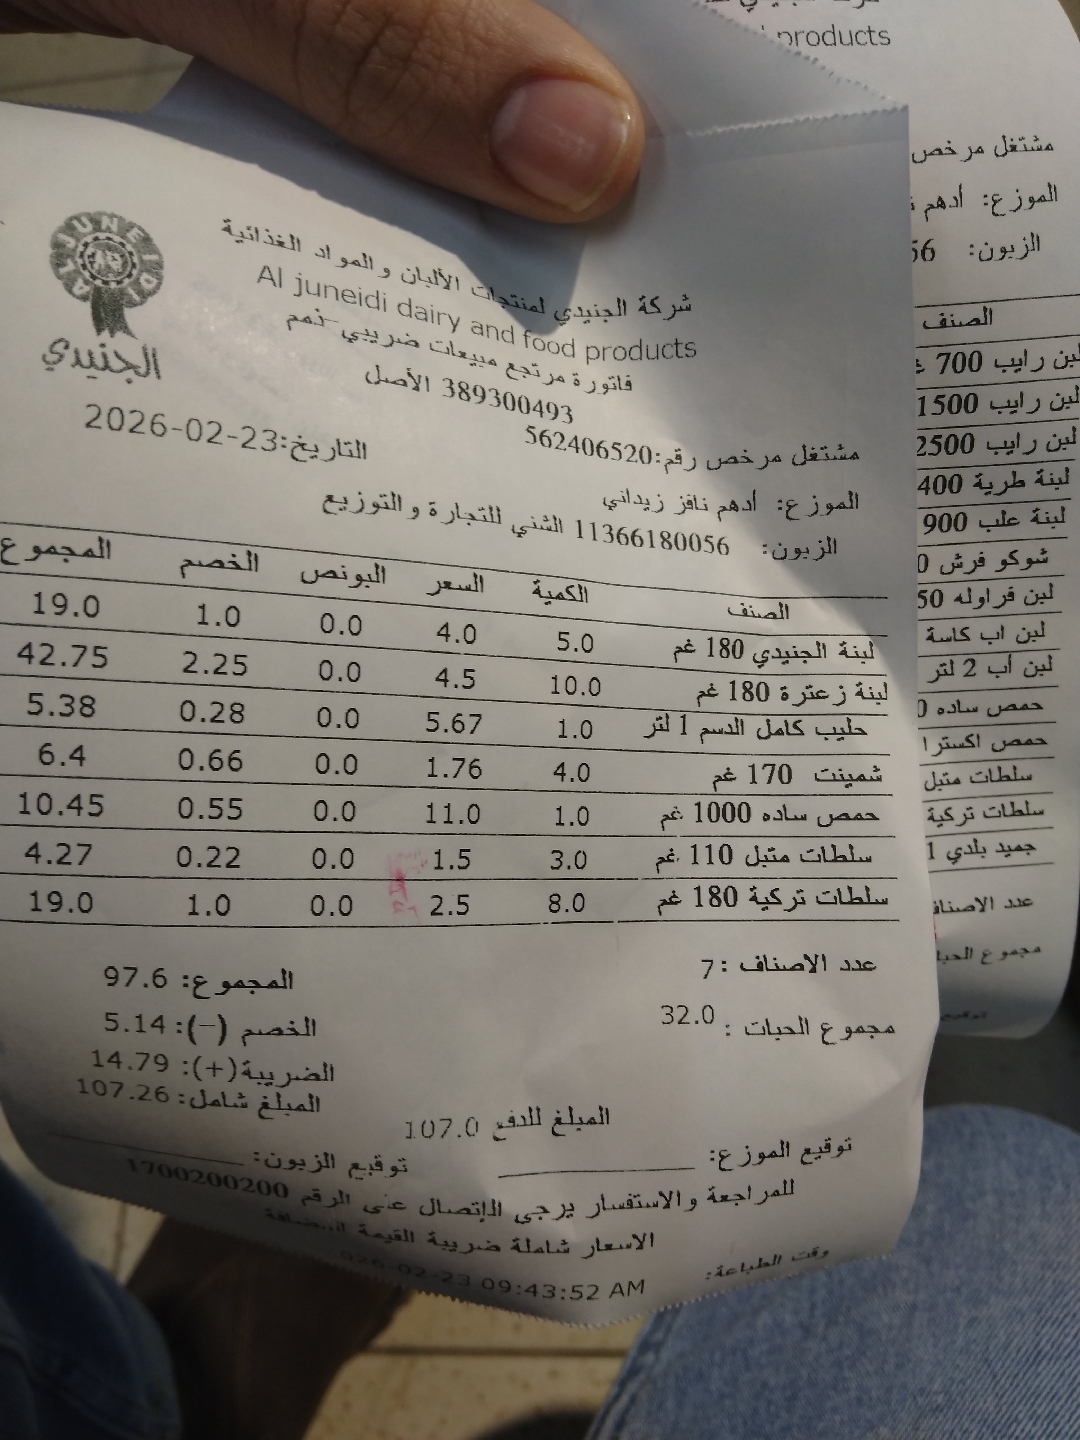 AL JUNEIDI
الجنيدي
شركة الجنيدي لمنتجات الألبان و المواد الغذائية
Al juneidi dairy and food products
فاتورة مرتجع مبيعات ضريبي-ذمم
389300493 الأصل
مشتغل مرخص رقم:562406520
التاريخ:2026-02-23
الموزع: أدهم نافز زيداني
الزبون: 11366180056 الشني للتجارة والتوزيع
الصنف الكمية السعر البونص الخصم المجموع
لبنة الجنيدي 180 غم 5.0 4.0 0.0 1.0 19.0
لبنة زعترة 180 غم 10.0 4.5 0.0 2.25 42.75
حليب كامل الدسم 1 لتر 1.0 5.67 0.0 0.28 5.38
شمينت 170 غم 4.0 1.76 0.0 0.66 6.4
حمص ساده 1000 غم 1.0 11.0 0.0 0.55 10.45
سلطات متبل 110 غم 3.0 1.5 0.0 0.22 4.27
سلطات تركية 180 غم 8.0 2.5 0.0 1.0 19.0
عدد الاصناف : 7
المجموع: 97.6
مجموع الحبات : 32.0
الخصم (-): 5.14
الضريبة(+): 14.79
المبلغ شامل: 107.26
المبلغ للدفع 107.0
توقيع الموزع:
توقيع الزبون:
للمراجعة والاستفسار يرجى الإتصال على الرقم 1700200200
الاسعار شاملة ضريبة القيمة المضافة
وقت الطباعة: 026-02-23 09:43:52 AM
products
مشتغل مرخص
الموزع: أدهم
الزبون: 56
الصنف
لبن رايب 700
لبن رايب 1500
لبن رايب 2500
لبنة طرية 400
لبنة علب 900
شوكو فرش
لبن فراوله
لبن اب كاسة
لبن أب 2 لتر
حمص ساده
حمص اكسترا
سلطات متبل
سلطات تركية
جميد بلدي 1
عدد الاصناف
مجموع